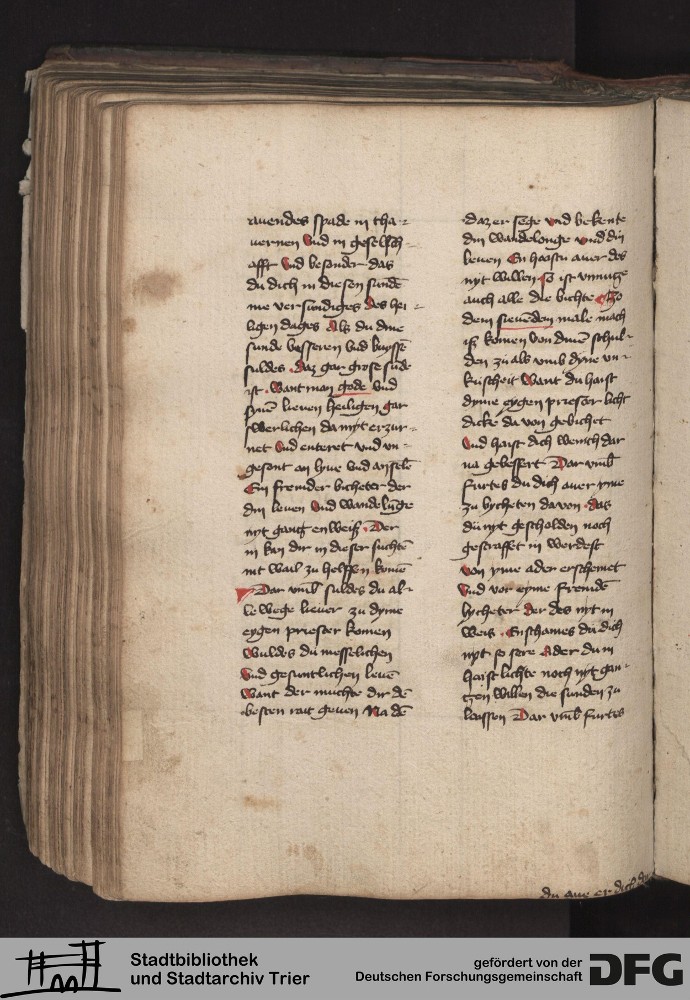 auendes spade in tha-
uernen vnd in geselsch-
afft vnd besonder das
du dich in diesen sundē
me versundiges des hei-
ligen dages Als du dine
sunde besseren vnd buyssē
suldes daz gar grose sūde
ist want man gode vnd
synē lieuen heiligen gar
swerlichen da myt erzur-
net vnd enteret vnd vn-
gesont an lyue vnd an selē
Ein fremder bichter der
din leuen vnd wandelūge
nyt gantz enweiß Der
in kan dir in dieser suchten
nit wail zu helffen komē
Dar vmb suldes du al-
lewege lieuer zu dyme
eygen priester komen
wuldes du messelichen
vnd gesuntlichen leuē
want der muchte dir dē
besten rait geuen Na dē
daz er sege vnd bekente
din wandelonge vnd din
leuen En haistu auer des
nyt willen so ist vnnutze
auch alle die bichte Czo
dem sieuenden male mach
iß komen von dinē schul-
den zu als vmb dyne vn-
kuscheit want du haist
dyme eygen priester licht
dicke da von gebichtet
vnd haist dich wenich dar
na gebessert Dar vmb
furtes du dich auer yme
zu bychten da von das
du nyt gescholden noch
gestraffet in werdest
von yme ader erschemet
vnd vor eyme fremdē
bychter der des nyt in
weis Enschames du dich
nyt so sere Ader du in
haist lichte noch nyt gan-
tzen willen die sunden zu
laissen Dar vmb furtes
Stadtbibliothek
und Stadtarchiv Trier
gefördert von der
Deutschen Forschungsgemeinschaft
DFG